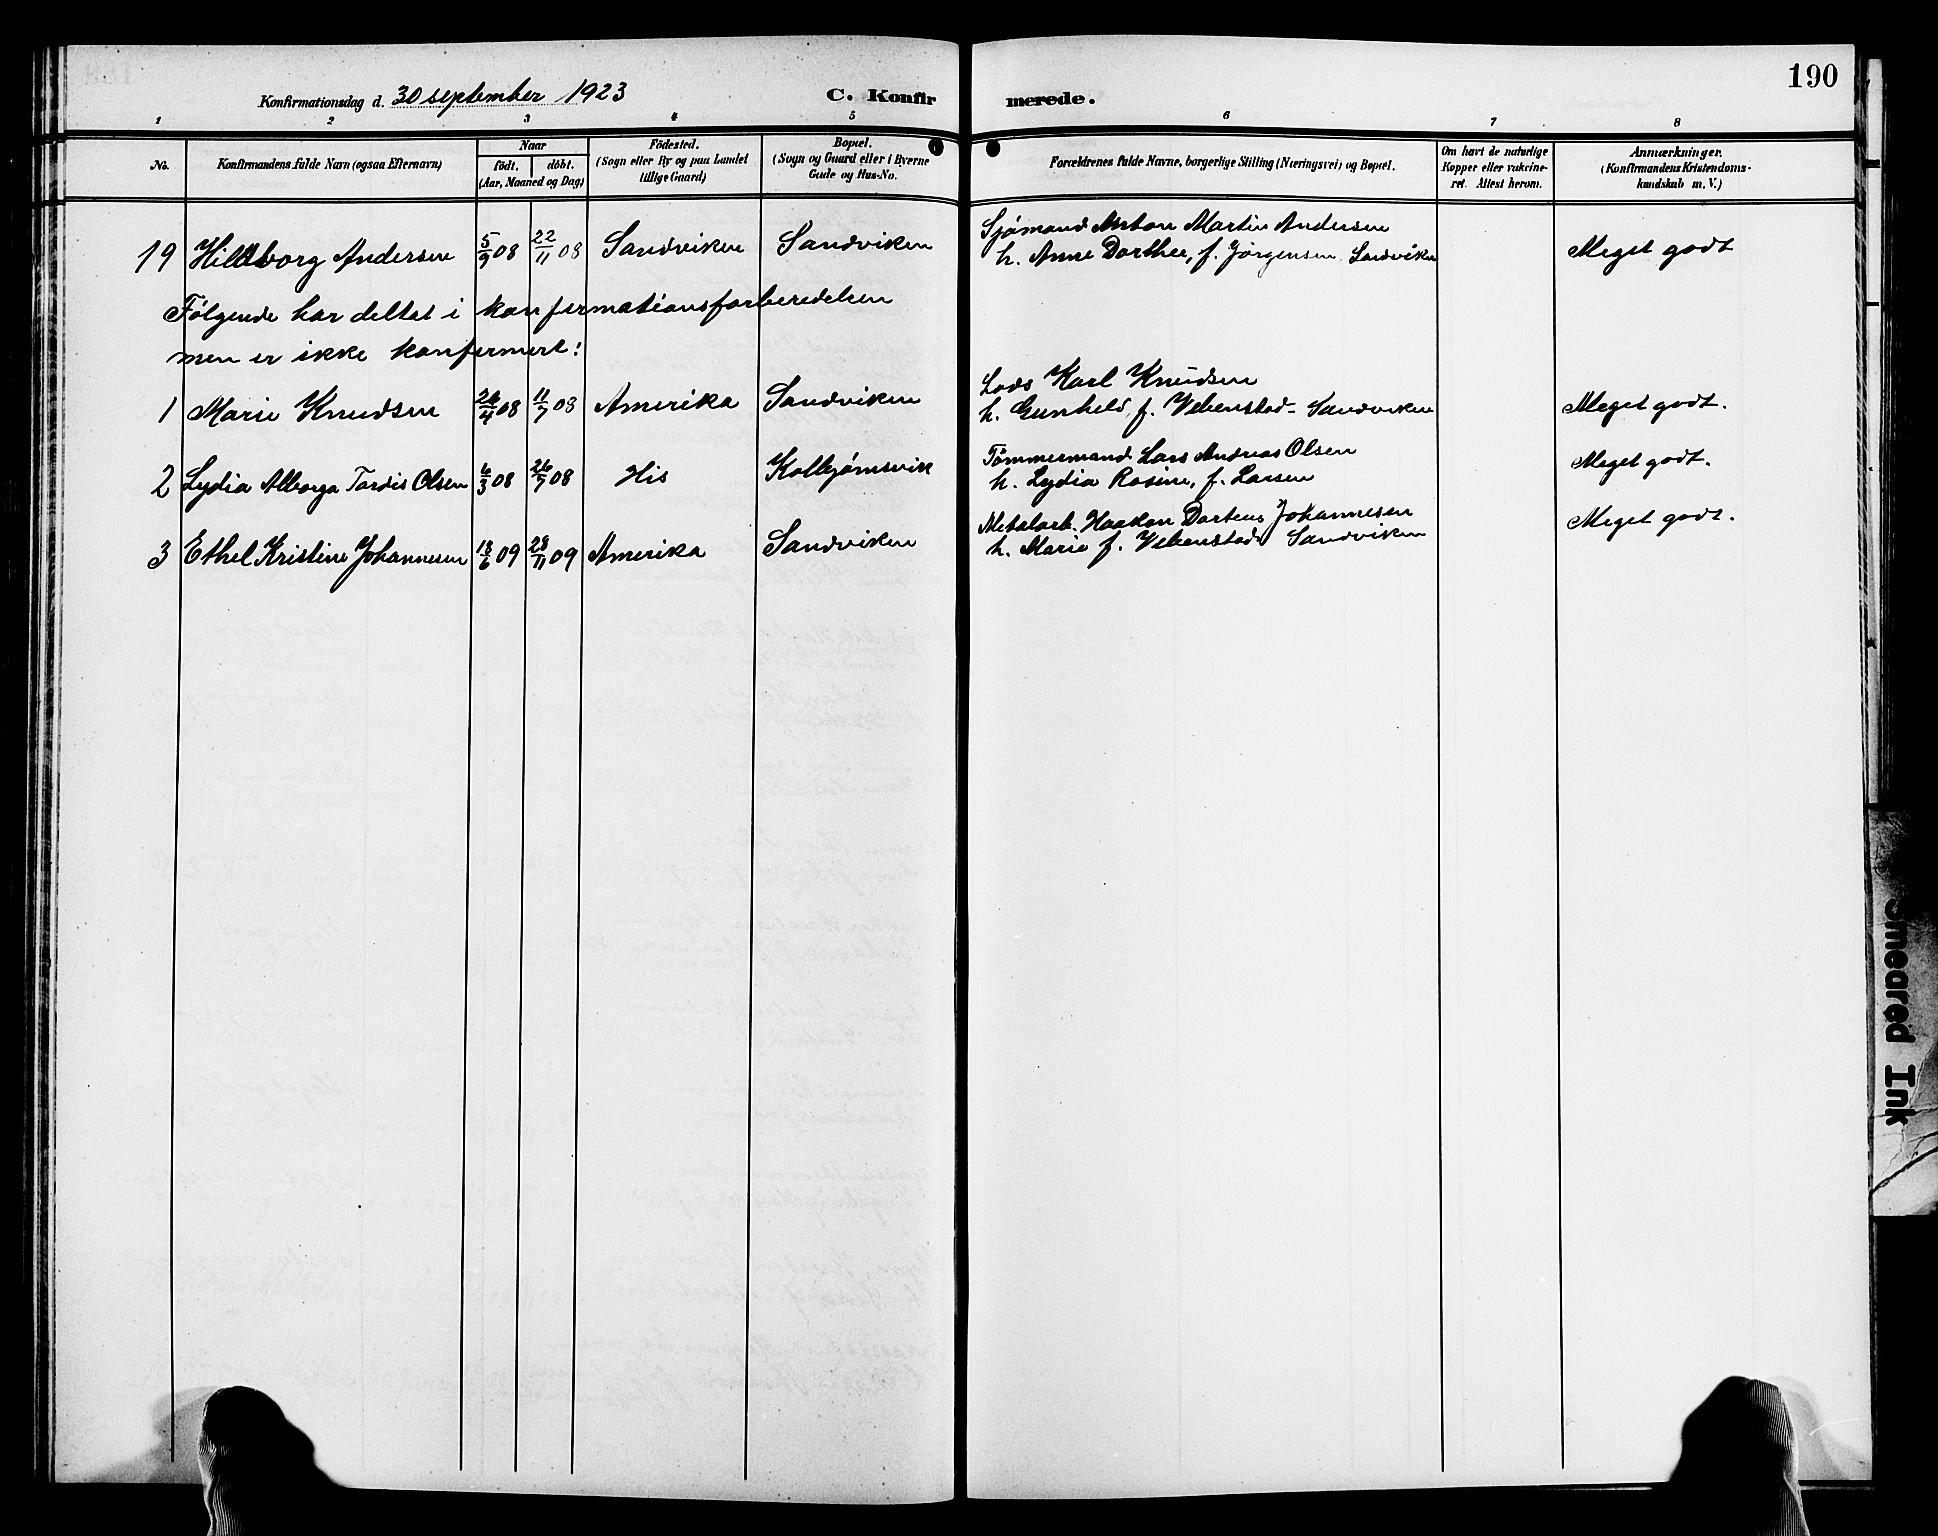 190
Konfirmationsdag d. 30 september 1923 C. Konfirmerede.
1 2 3 4 5 6 7 8
No. Konfirmandens fulde Navn (ogsaa Efternavn) Naar födt. döbt. (Aar, Maaned og Dag) Födested. (Sogn eller By og paa Landet tillige Gaard) Bopæl. (Sogn og Gaard eller i Byerne Gade og Hus-No. Forældrenes fulde Navne, borgerlige Stilling (Næringsvei) og Bopæl. Om havt de naturlige Kopper eller vakcineret. Attest herom. Anmærkninger. (Konfirmandens Kristendomskundskab m. V.)
Sjømand Anton Martin Andersen
19 Hildborg Andersen 5/9 08 22/11 08 Sandviken Sandviken h. Anne Dorthee, f. Jørgensen Sandviken Meget godt
Følgende har deltat i konfermationsforberedelsen
men er ikke konfermert:
Lods Karl Knudsen
1 Marie Knudsen 26/4 08 11/7 08 Amerika Sandviken h. Gunheld, f. Vebenstad - Sandviken Meget godt.
Tømmermand Lars Andreas Olsen
2 Lydia Alborga Tordis Olsen 6/3 08 26/7 08 His Kolbjømsvik h. Lydia Rosine, f. Larsen Meget godt.
Metalarb. Haakon Dorteus Johannesen
3 Ethel Kristine Johannesen 18/6 09 28/11 09 Amerika Sandviken h. Marie f. Vebenstad Sandviken Meget godt.
Smeared Ink